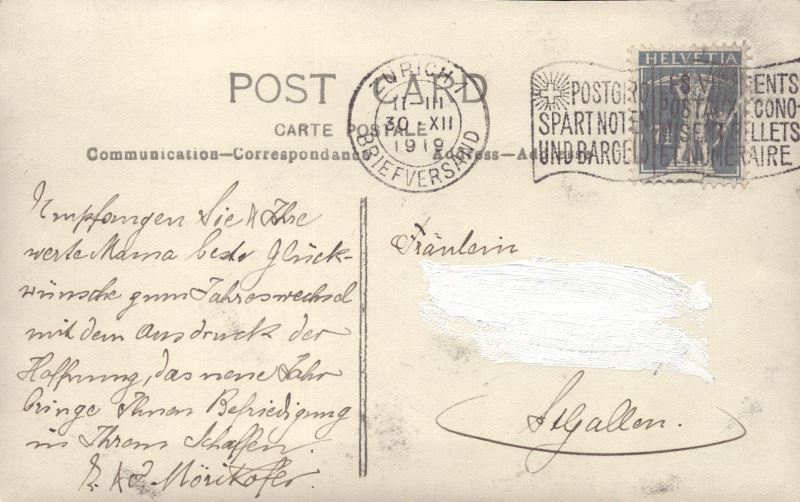 POST CARD
CARTE POSTALE
Communication—Correspondance
ZÜRICH 1
II-III
30-XII
1919
BRIEFVERSAND
HELVETIA
7½
POSTGIRO
SPART NOTEN
UND BARGELD
ENTS
POSTAUX ECONO-
MISENT BILLETS
ET NUMERAIRE
Empfangen Sie & Ihre
werte Mama beste Glück-
wünsche zum Jahreswechsel
mit dem Ausdruck der
Hoffnung, das neue Jahr
bringe Ihnen Befriedigung
in Ihrem Schaffen.
Mörikofer.
Fräulein
St Gallen.